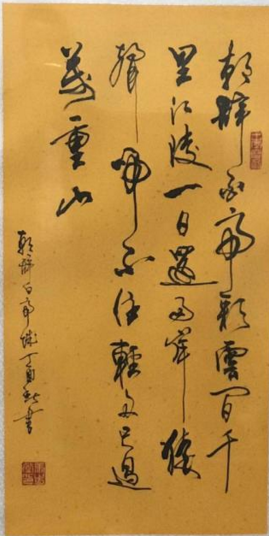 朝辭白帝彩雲間千
里江陵一日還兩岸猿
聲啼不住輕舟已過
萬重山
朝辭白帝城丁酉秋書